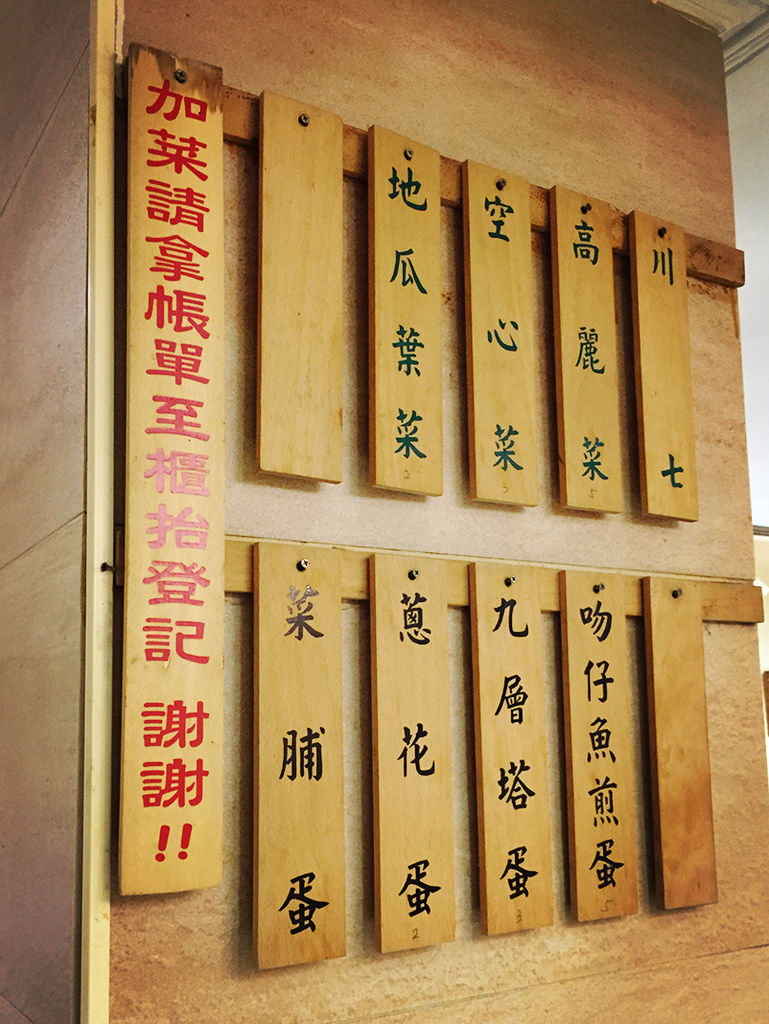 加菜請拿帳單至櫃抬登記 謝謝!!
川七
高麗菜
5
空心菜
3
地瓜葉菜
2
吻仔魚煎蛋
5
九層塔蛋
3
蔥花蛋
2
菜脯蛋